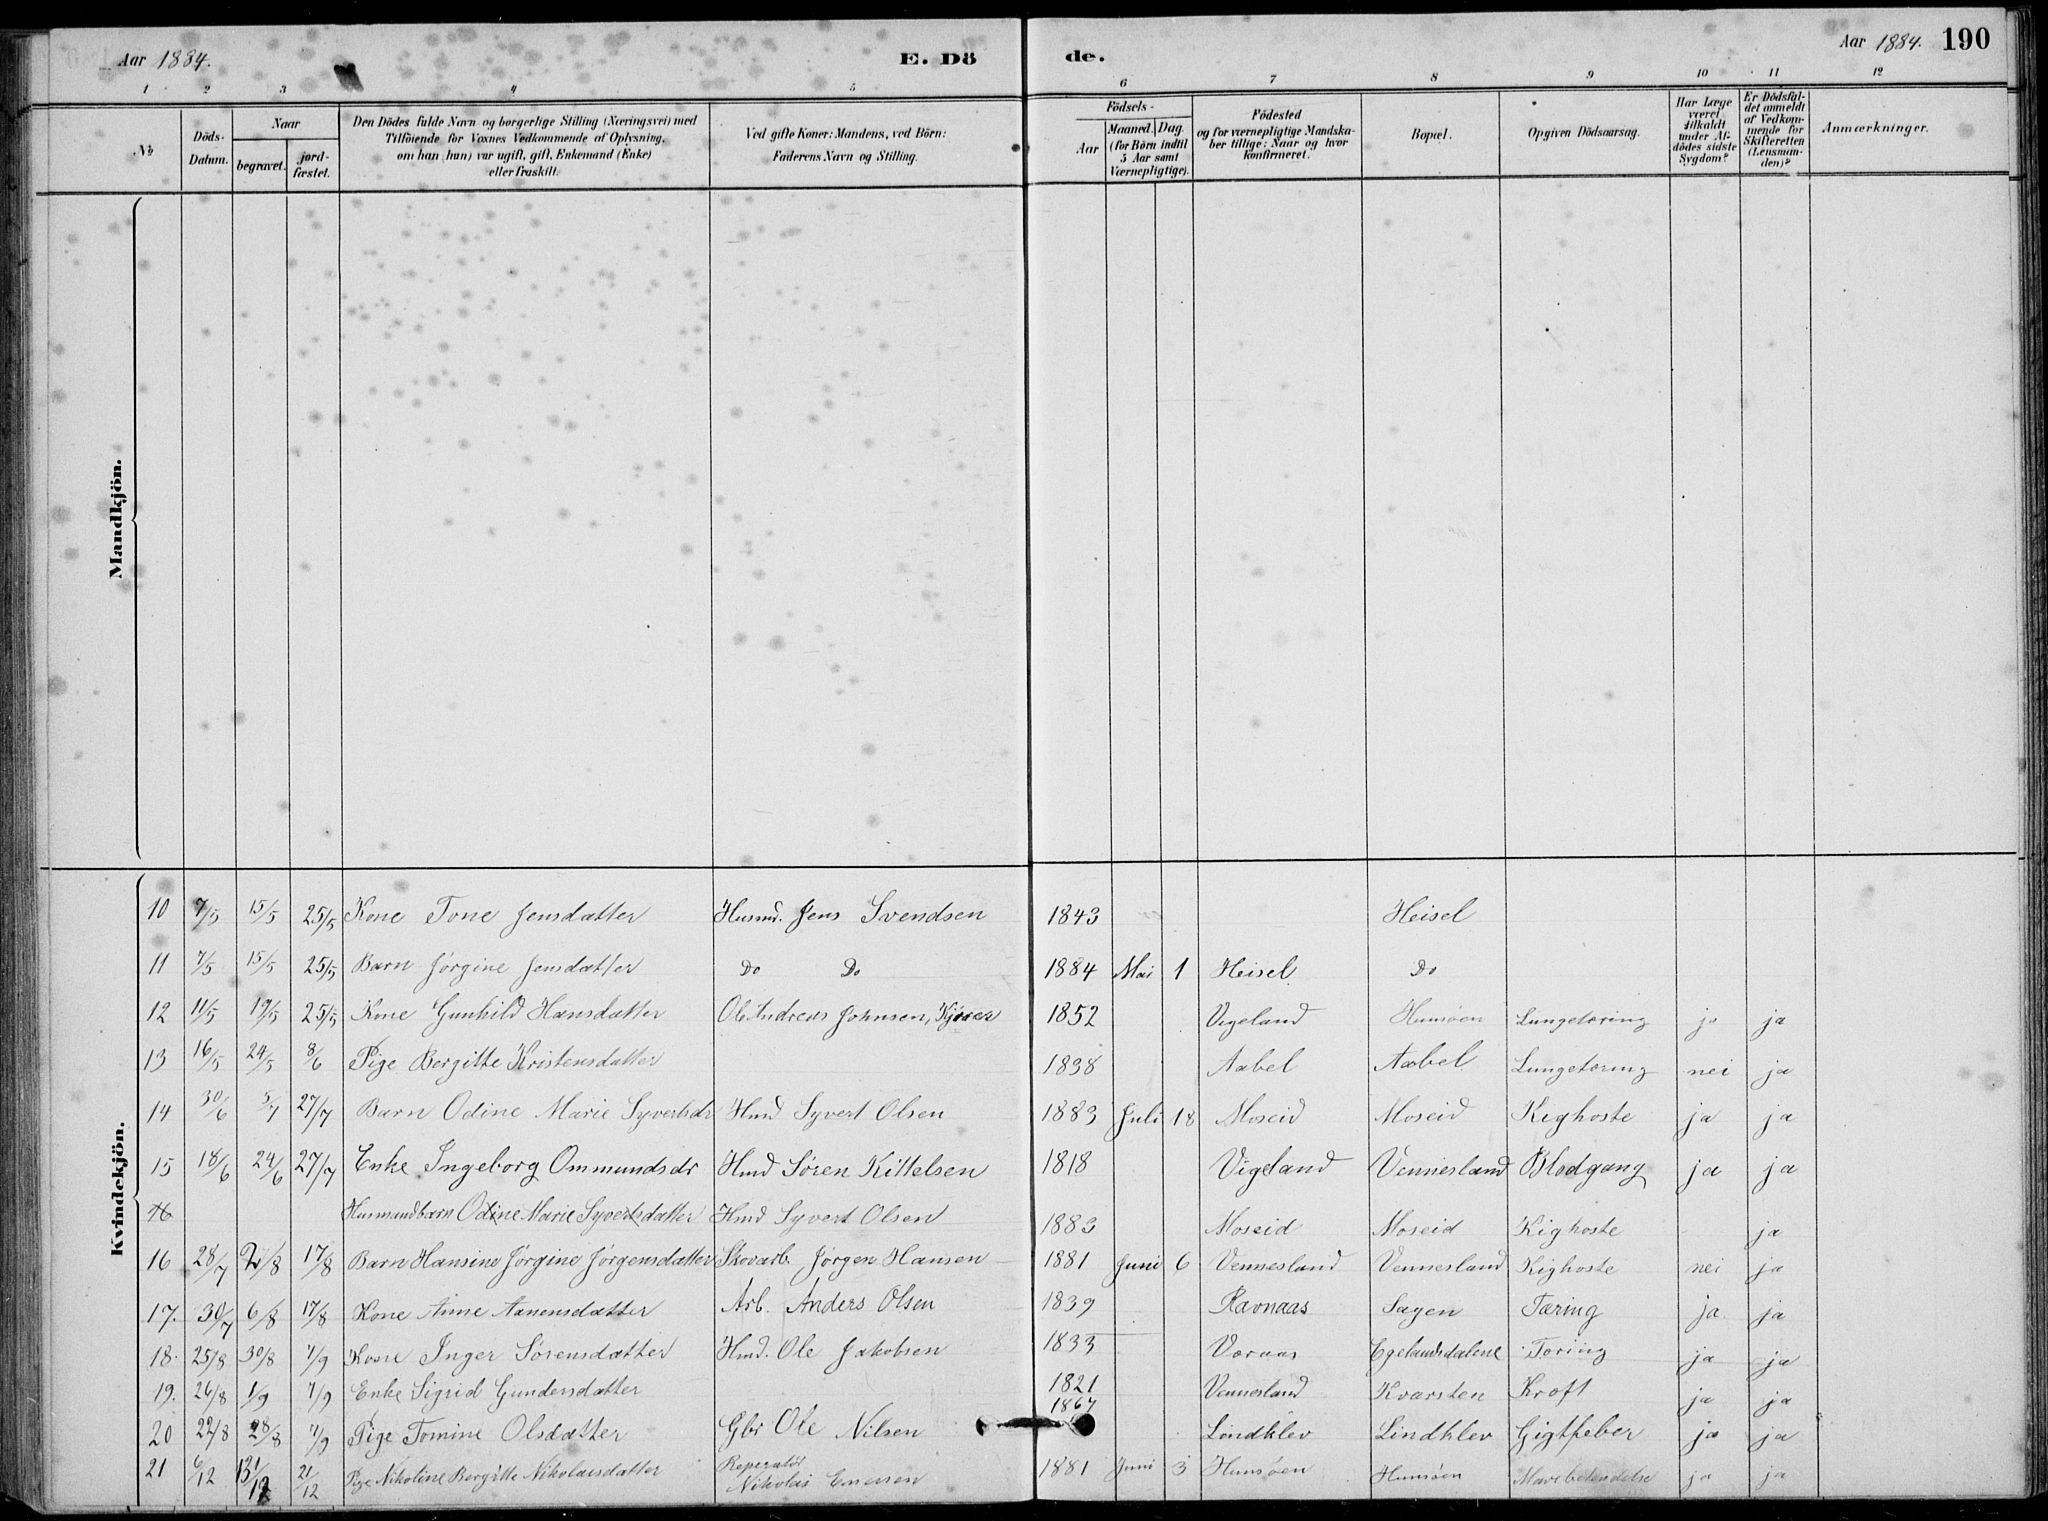 Aar 1884. E. Dö de. Aar 1884. 190
1 2 3 4 5 6 7 8 9 10 11 12
No
Döds-Datum.
Naar
begravet. jordfæstet.
Den Dödes fulde Navn og borgerlige Stilling (Næringsvei) med
Tilföiende for Voxnes Vedkommende af Oplysning,
om han (hun) var ugift, gift, Enkemand (Enke)
eller fraskilt.
Ved gifte Koner: Mandens, ved Börn:
Faderens Navn og Stilling.
Födsels-
Aar
Maaned. Dag.
(for Börn indtil
5 Aar samt
Værnepligtige).
Födested
og for værnepligtige Mandska-
ber tillige: Naar og hvor
konfirmeret.
Bopæl.
Opgiven Dödsaarsag.
Har Læge
været
tilkaldt
under Af-
dödes sidste
Sygdom?
Er Dödsfal-
det anmeldt
af Vedkom-
mende for
Skifteretten
(Lensman-
den)?
Anmærkninger.
Mandkjön.
Kvindekjön.
10 7/5 15/5 25/5 Kone Tone Jensdatter Husmd. Jens Svendsen 1843 Heisel
11 7/5 15/5 25/5 Barn Jørgine Jensdatter Do Do 1884 Mai 1 Heisel Do
12 11/5 19/5 25/5 Kone Gunhild Hansdatter Ole Andreas Johnsen, 1852 Vigeland Hunsøen Lungetæring ja ja
13 16/5 24/5 8/6 Pige Bergitte Kristensdatter 1838 Aabel Aabel Lungetæring nei ja
14 30/6 5/7 27/7 Barn Odine Marie Syvertsdr Hmd Syvert Olsen 1883 Juli 18 Moseid Moseid Kighoste ja ja
15 18/6 24/6 27/7 Enke Ingeborg Ommundsdr Hmd Søren Kittelsen 1818 Vigeland Vennesland Blodgang ja ja
16 Husmandbarn Odine Marie Syvertsdatter Hmd Syvert Olsen 1883 Moseid Moseid Kighoste ja
16 28/7 2/8 17/8 Barn Hansine Jørgine Jørgensdatter Skovarb. Jørgen Hansen 1881 Juni 6 Vennesland Vennesland Kighoste nei ja
17. 30/7 6/8 17/8 Kone Anne Aanensdatter Arb. Anders Olsen 1839 Ravnaas Sagen Tæring ja ja
18. 25/8 30/8 7/9 Kone Inger Sørensdatter Hmd. Ole Jakobsen 1833 Egelandsdalene Tæring ja ja
19. 26/8 1/9 7/9 Enke Sigrid Gundersdatter 1821 Vennesland Kvarsten Kræft ja ja
20 22/8 28/8 7/9 Pige Tomine Olsdatter Gbr Ole Nilsen 1867 Lindklev Lindklev Gigtfeber ja ja
21 6/12 /12 21/12 Pige Nikoline Bergitte Nikolaisdatter Reperatør Nikolai 1881 Juni 3 Hunsøen Hunsøen Mavebetendelse ja ja